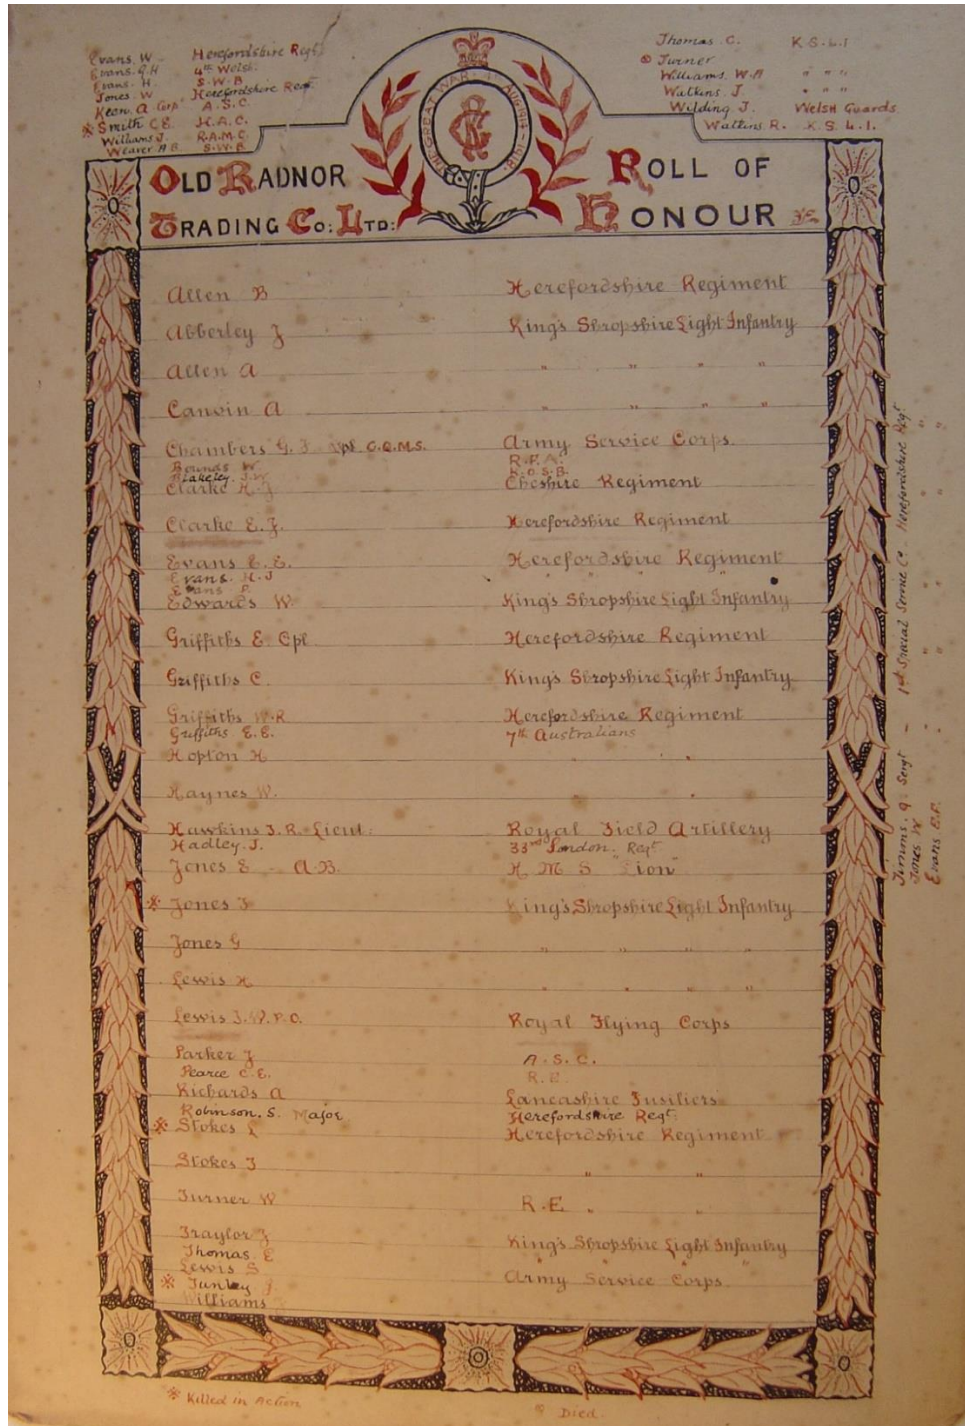 Evans. W. Herefordshire Regt
Evans. G.H 4th Welsh.
Evans. H. S.W.B
Jones. W Herefordshire Regt.
Keen. A Corp. A.S.C.
※ Smith C.E. H.A.C.
Williams J. R.A.M.C.
Weaver A B S.W.B.
Thomas. C. K.S.L.I
Turner " " "
Williams. W.A " " "
Watkins. J. " " "
Wilding J. Welsh Guards
Watkins R. K.S.L.I.
THE GREAT WAR · 4th AUG 1914 - 1918
OLD RADNOR TRADING CO: LTD:
ROLL OF HONOUR
Allen B Herefordshire Regiment
Abberley J King's Shropshire Light Infantry
Allen A " " " "
Canvin A " " " "
Chambers G. J. C.Q.M.S. Army Service Corps.
Bounds W. R.F.A.
Blakeley. J.W. K.O.S.B.
Clarke H. J Cheshire Regiment
Clarke E. J. Herefordshire Regiment
Evans E. E. Herefordshire Regiment
Evans. H.J " " "
Evans P.
Edwards W. King's Shropshire Light Infantry
Griffiths E. Cpl. Herefordshire Regiment
Griffiths C. King's Shropshire Light Infantry
Griffiths W.R Herefordshire Regiment
Griffiths E.E. 7th Australians
Hopton H " "
Haynes W. " "
Hawkins J. R. Lieut: Royal Field Artillery
Hadley. J. 33rd London. Regt.
Jones E - A.B. H M S "Lion"
※ Jones J King's Shropshire Light Infantry
Jones G " " " "
Lewis H " " " "
Lewis J.W.P.O. Royal Flying Corps
Parker J A.S.C.
Pearce C.E. R.E.
Richards A Lancashire Fusiliers
Robinson. S. Major Herefordshire Regt.
※ Stokes L Herefordshire Regiment
Stokes J " "
Turner W R.E. " "
Traylor J King's Shropshire Light Infantry
Thomas. E " " "
Lewis S Army Service Corps.
※ Tunley J
Williams
Timms. G. Sergt - 1st Special Service Co. Herefordshire Regt
Jones W " " " "
Evans E.F. " " " "
※ Killed in Action
Died.